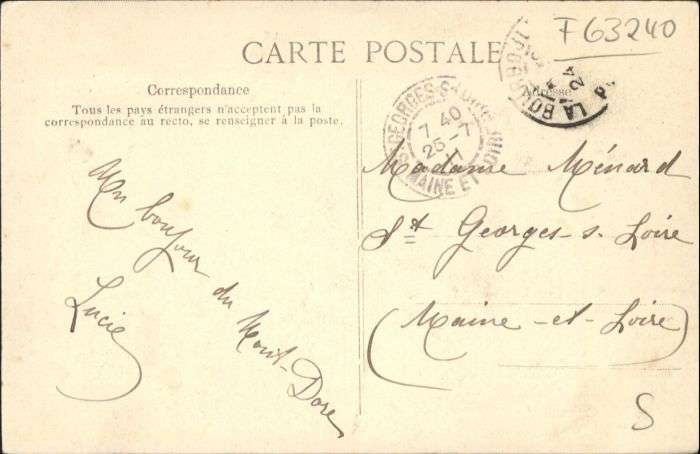 F63240
CARTE POSTALE
Correspondance
Tous les pays étrangers n'acceptent pas la
correspondance au recto, se renseigner à la poste.
Un bonjour du Mont-Dore
Lucie
ST GEORGES-S-LOIRE
7 40
25-7
MAINE ET LOIRE
LA BOURBOU
Madame Ménard
St Georges-s-Loire
(Maine-et-Loire)
S